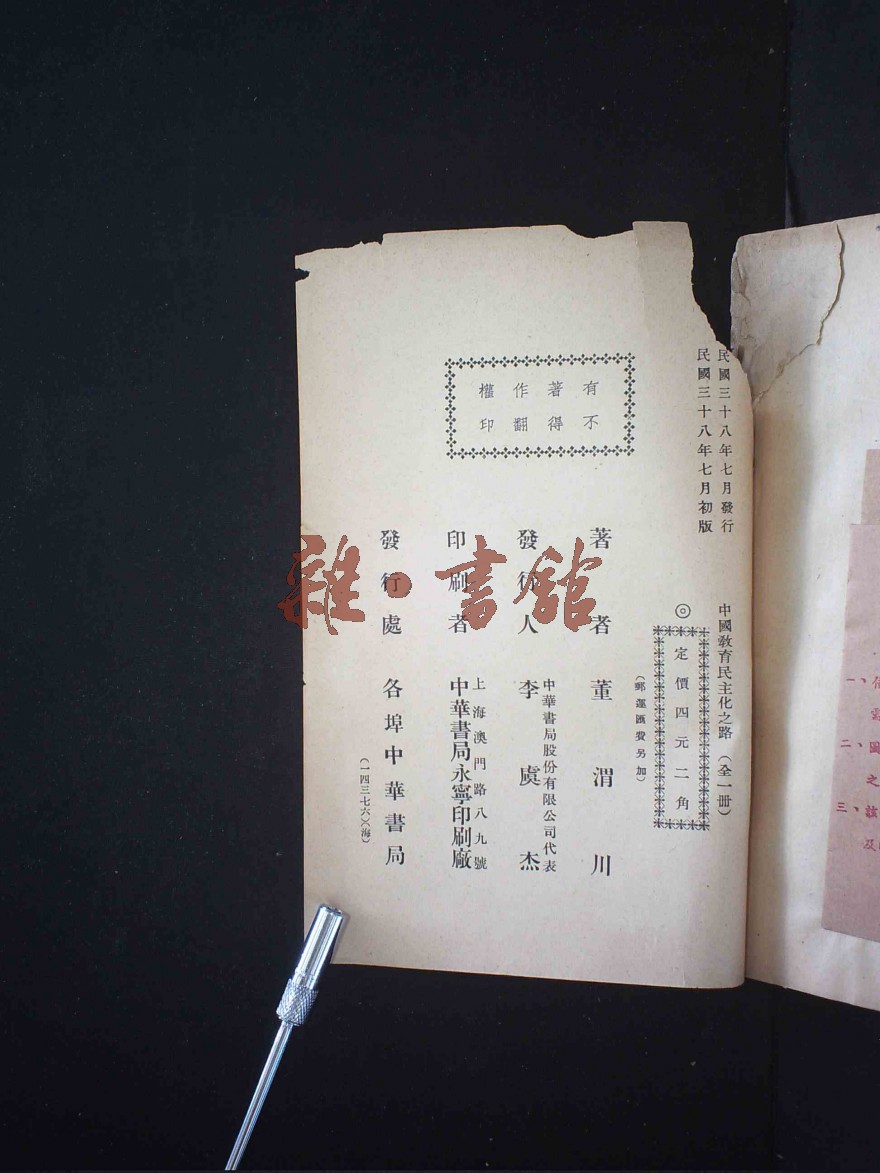 民國三十八年七月發行
民國三十八年七月初版
中國教育民主化之路（全一冊）
◎定價四元二角
（郵運匯費另加）
有著作權
不得翻印
著者 董渭川
發行人 中華書局股份有限公司代表
李虞杰
印刷者 上海澳門路八九號
中華書局永寧印刷廠
發行處 各埠中華書局
（一四三七六）（海）
雜·書館
一、
二、圖
之
三、
及